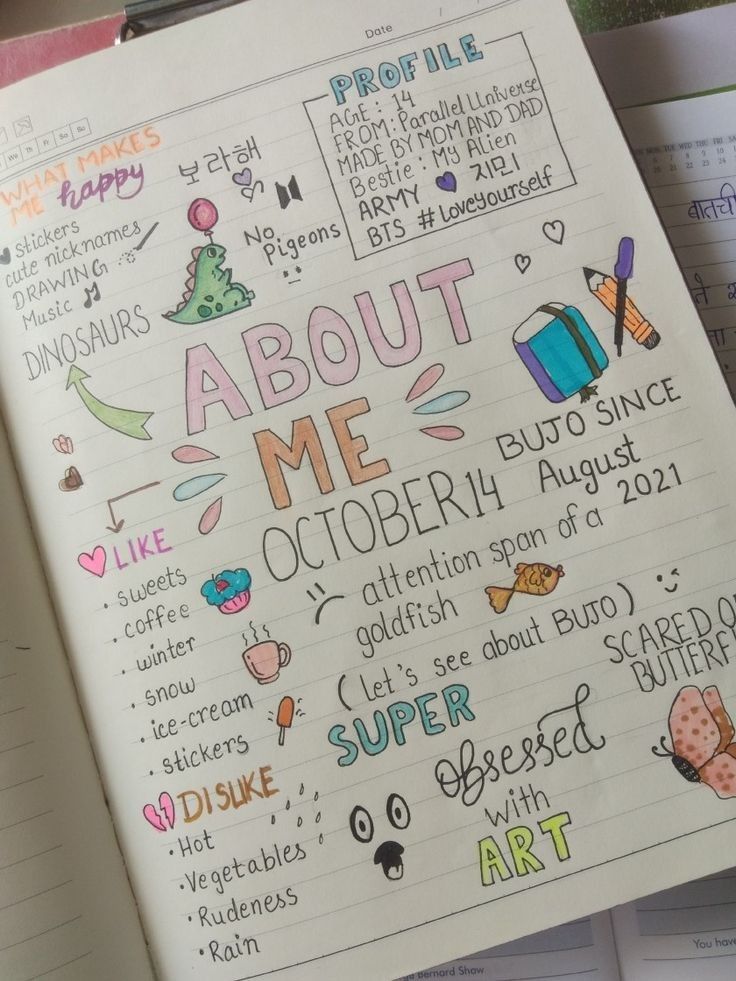 Date
We Th Fr Sa So
WHAT MAKES
ME happy
stickers
cute nicknames
DRAWING
Music
DINOSAURS
보라해
No
Pigeons
PROFILE
AGE : 14
FROM: Parallel Universe
MADE BY MOM AND DAD
Bestie : My Alien
ARMY 지민
BTS #loveyourself
ABOUT
ME
OCTOBER 14
BUJO SINCE
August
2021
attention span of a
goldfish
(let's see about BUJO)
LIKE
. sweets
. coffee
. winter
. snow
. ice-cream
. stickers
SUPER
obsessed
with
ART
SCARED
BUTTERF
DISLIKE
• Hot
• Vegetables
• Rudeness
• Rain
MON TUE WED THU FRI SA
बातची
Bernard Shaw
You have